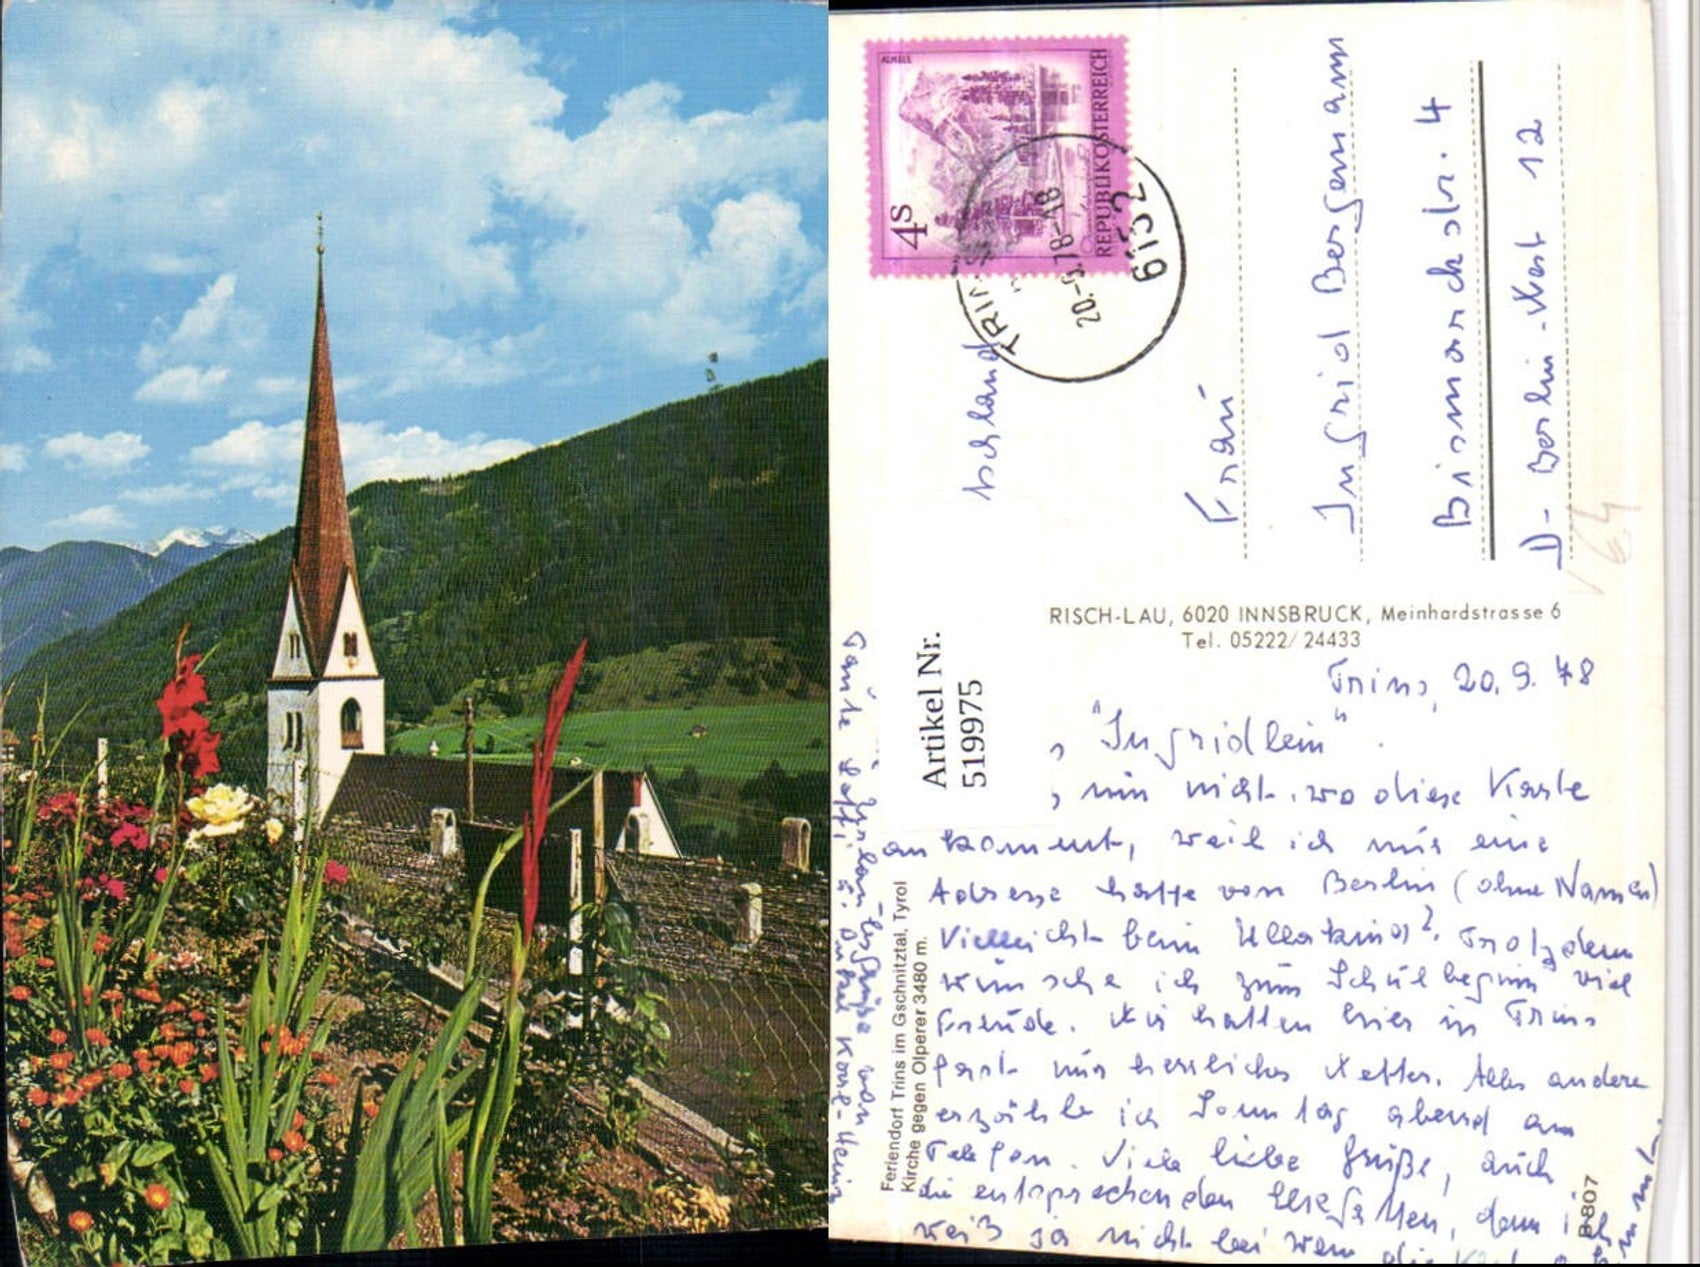 ALMSEE
4S
REPUBLIK ÖSTERREICH
TRINS
20.-9.78-18
6152
Frau
Ingrid Bergemann
Bismarckstr. 4
D- Berlin-West 12
64
RISCH-LAU, 6020 INNSBRUCK, Meinhardstrasse 6
Tel. 05222/24433
Artikel Nr.
519975
Feriendorf Trins im Gschnitztal, Tyrol
Kirche gegen Olperer 3480 m.
B 807
Trins, 20.9.78
"Ingridlein"
mir nicht, wo diese Karte
ankommt, weil ich nur eine
Adresse hatte von Berlin (ohne Namen)
Vielleicht beim ? Trotzdem
wünsche ich zum Schulbeginn viel
Freude. Wir hatten hier in Trins
fast nur herrliches Wetter. Alles andere
erzähle ich Sonntag abend am
Telefon. Viele liebe Grüße, auch
die entsprechenden, denn ich
weiß ja nicht bei wem die
Tante
von
Karl-Heinz